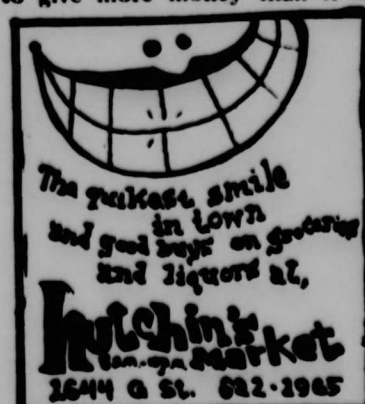 to give more money than
The quikest smile
in town
and good buys on groceries
and liquors at,
Hutchin's
Market
1644 G St. 622-1965